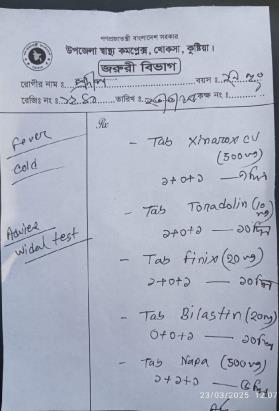 গণপ্রজাতন্ত্রী বাংলাদেশ সরকার
উপজেলা স্বাস্থ্য কমপ্লেক্স, খোকসা, কুষ্টিয়া।
জরুরী বিভাগ
রোগীর নাম ঃ বয়স ঃ
রেজিঃ নং ঃ তারিখ ঃ কক্ষ নং ঃ
Fever
Cold
Advice
Widal test
Rx
- Tab Ximarox CV
(500mg)
১+০+১ —
- Tab Toradolin (10
mg)
১+০+১ — ১০দিন
- Tab Finix (20mg)
১+০+১ — ১০দিন
- Tab Bilastin (20mg)
০+০+১ — ১০দিন
- Tab Napa (500mg)
১+১+১ —
23/03/2025 12:07